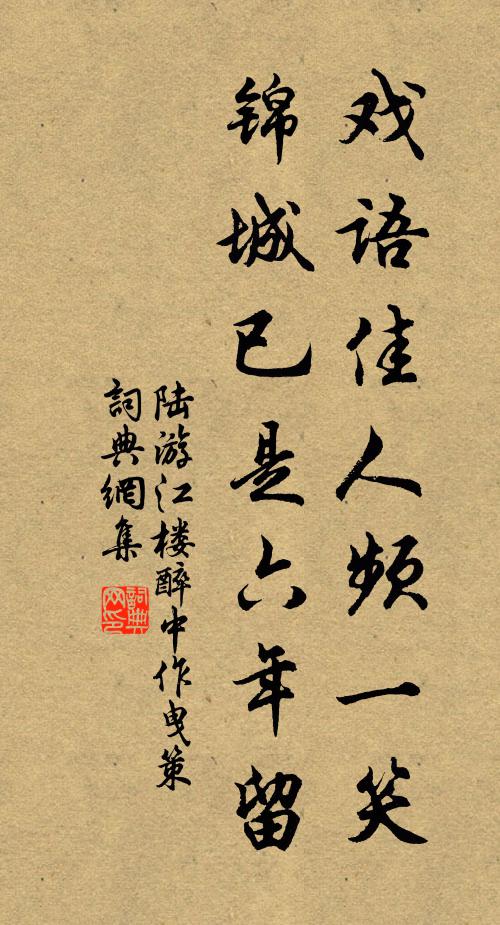 戏语佳人频一笑
锦城已是六年留
陆游江楼醉中作曳策
詞典網集
詞典
网印